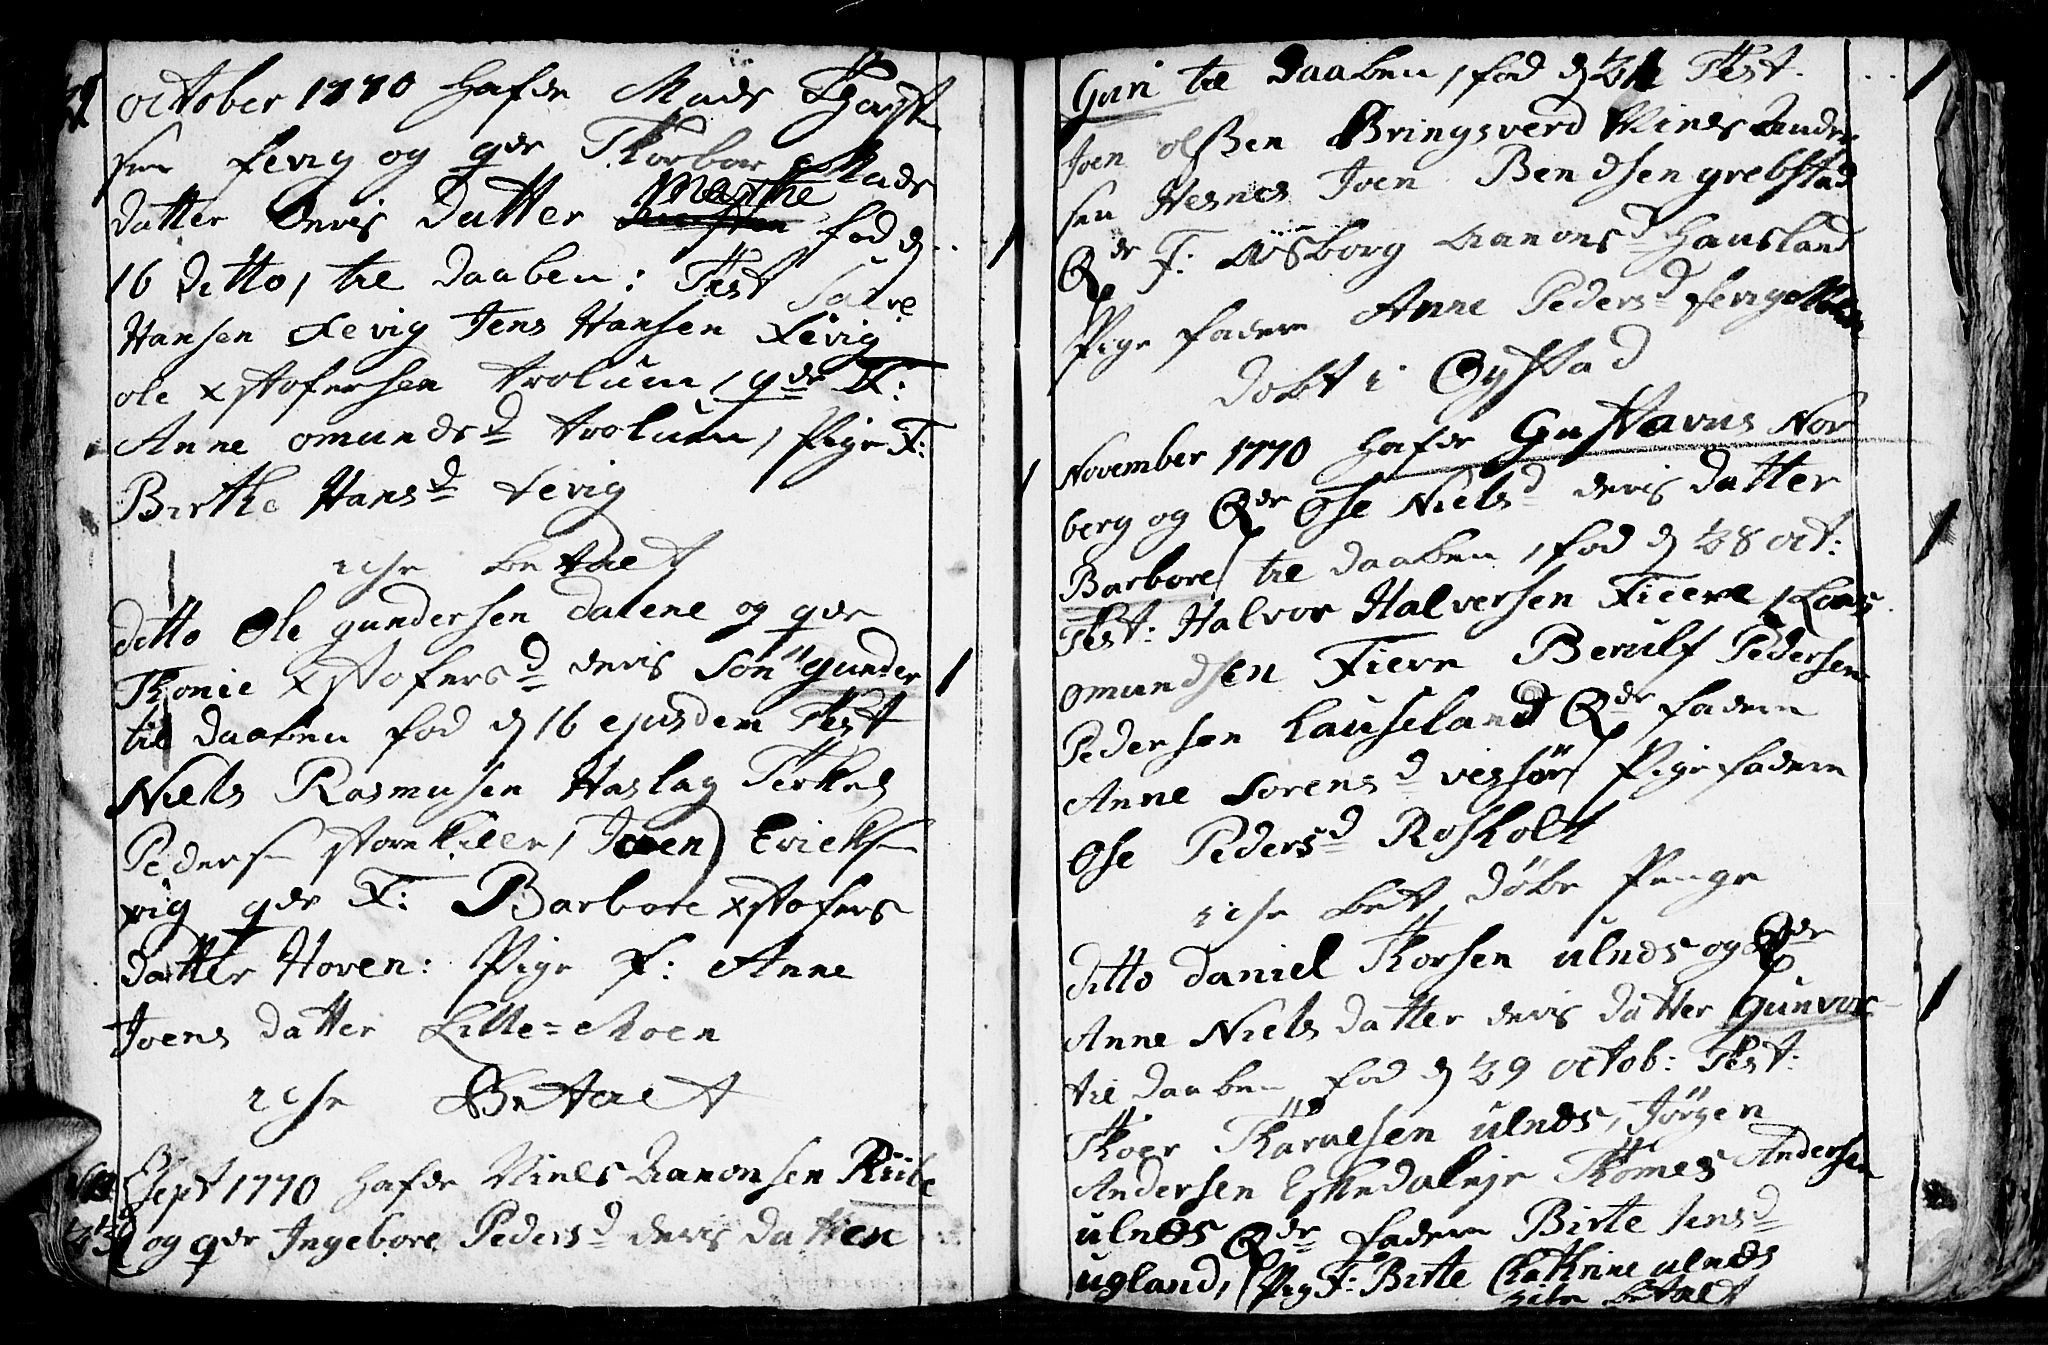 October 1770 hafde Mads Thorst
sen fevig og qvr Thorbor Mads
Marthe
datter deris datter fød d
16 ditto, til daaben: Test Salve
Hansen Fevig Jens Hansen Fevig
ole xstofersen trolum, qvr F:
Anne omundsd trolum, Pige F:
Birthe Hansd Fevig
betalt
ditto Ole gundersen dalene og qvr
Thonie xstofersd deris Søn gunder
til daaben fød d 16 ejusdem Test
Niels Rasmusen Haslag Terkel
Peders Joen Ericks
vig qvr F: Barbore xstofers
datter Hoven: Pige F: Anne
Joens datter Lille=Moen
Betalt
Sept 1770 hafde Niels Aanonsen
23
og qvr Ingebore Pedersd deris datter
Guri til daaben, fød d 24 Test.
Joen olssen Bringsverd Niels Ander
sen Hesnes Joen Bendsen grebstad
Qvr F: Aasborg Aanonsd Hausland
Pige fadern Anne Pedersd Fevig
døbt i Øystad
November 1770 hafde Gustavus Nor
berg og Qvr Ose Nielsd deris datter
Barbore til daaben, fød d 28 oct:
Test: Halvor Halversen Fieere, Lars
omundsen Fiere Berulf Pedersen
Pedersen Lauseland Qvr fadern
Anne Sørensd vessør Pige fadern
Ose Pedersd Rosholt
bet døbe Penge
ditto Daniel Thorsen ulnes og Qvr
Anne Niels datter deris datter Gunvor
til daaben fød d 29 octob: Test:
Thoer Tharuesen ulnes, Jørgen
Andersen Eskedaleje Thomes Andersen
ulnes Qvr fadern Birte Jensd
ugland, Pig F: Birte Chathrine ulnes
betalt